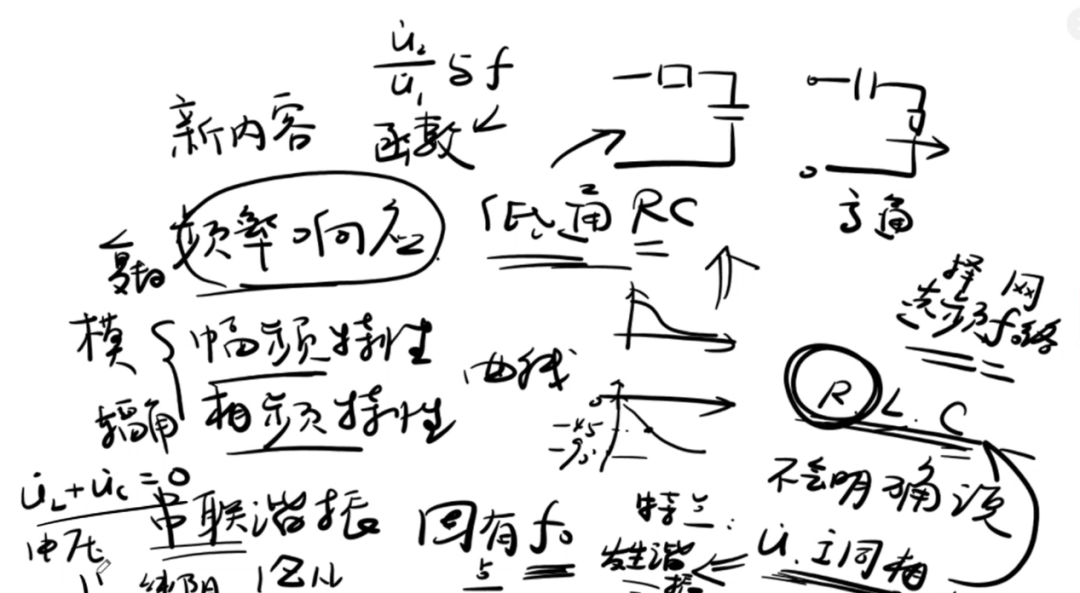 U̇₂/U̇₁ 与 f
新内容 函数
频率响应 低通 RC 高通
复数
选频网络 f₀
模 { 幅频特性
辐角 相频特性 曲线
0
-45
-90
R. L. C
不会明确说
U̇L+U̇C=0
电压 串联谐振 固有f₀ 特点:
与 发生谐振 U̇. İ同相
纯阻 |Z|小